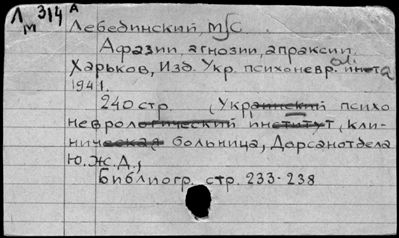 Л 314 А
М
Лебединский, М/С.
Афазии, агнозии, апраксии.
Харьков, Изд. Укр. психоневр. ин-та
1941.
240 стр. (Украинский психо
нефрологический институт, кли-
ническая больница, Дорсанотдела
Ю.Ж.Д.,
Библиогр. стр. 233-238